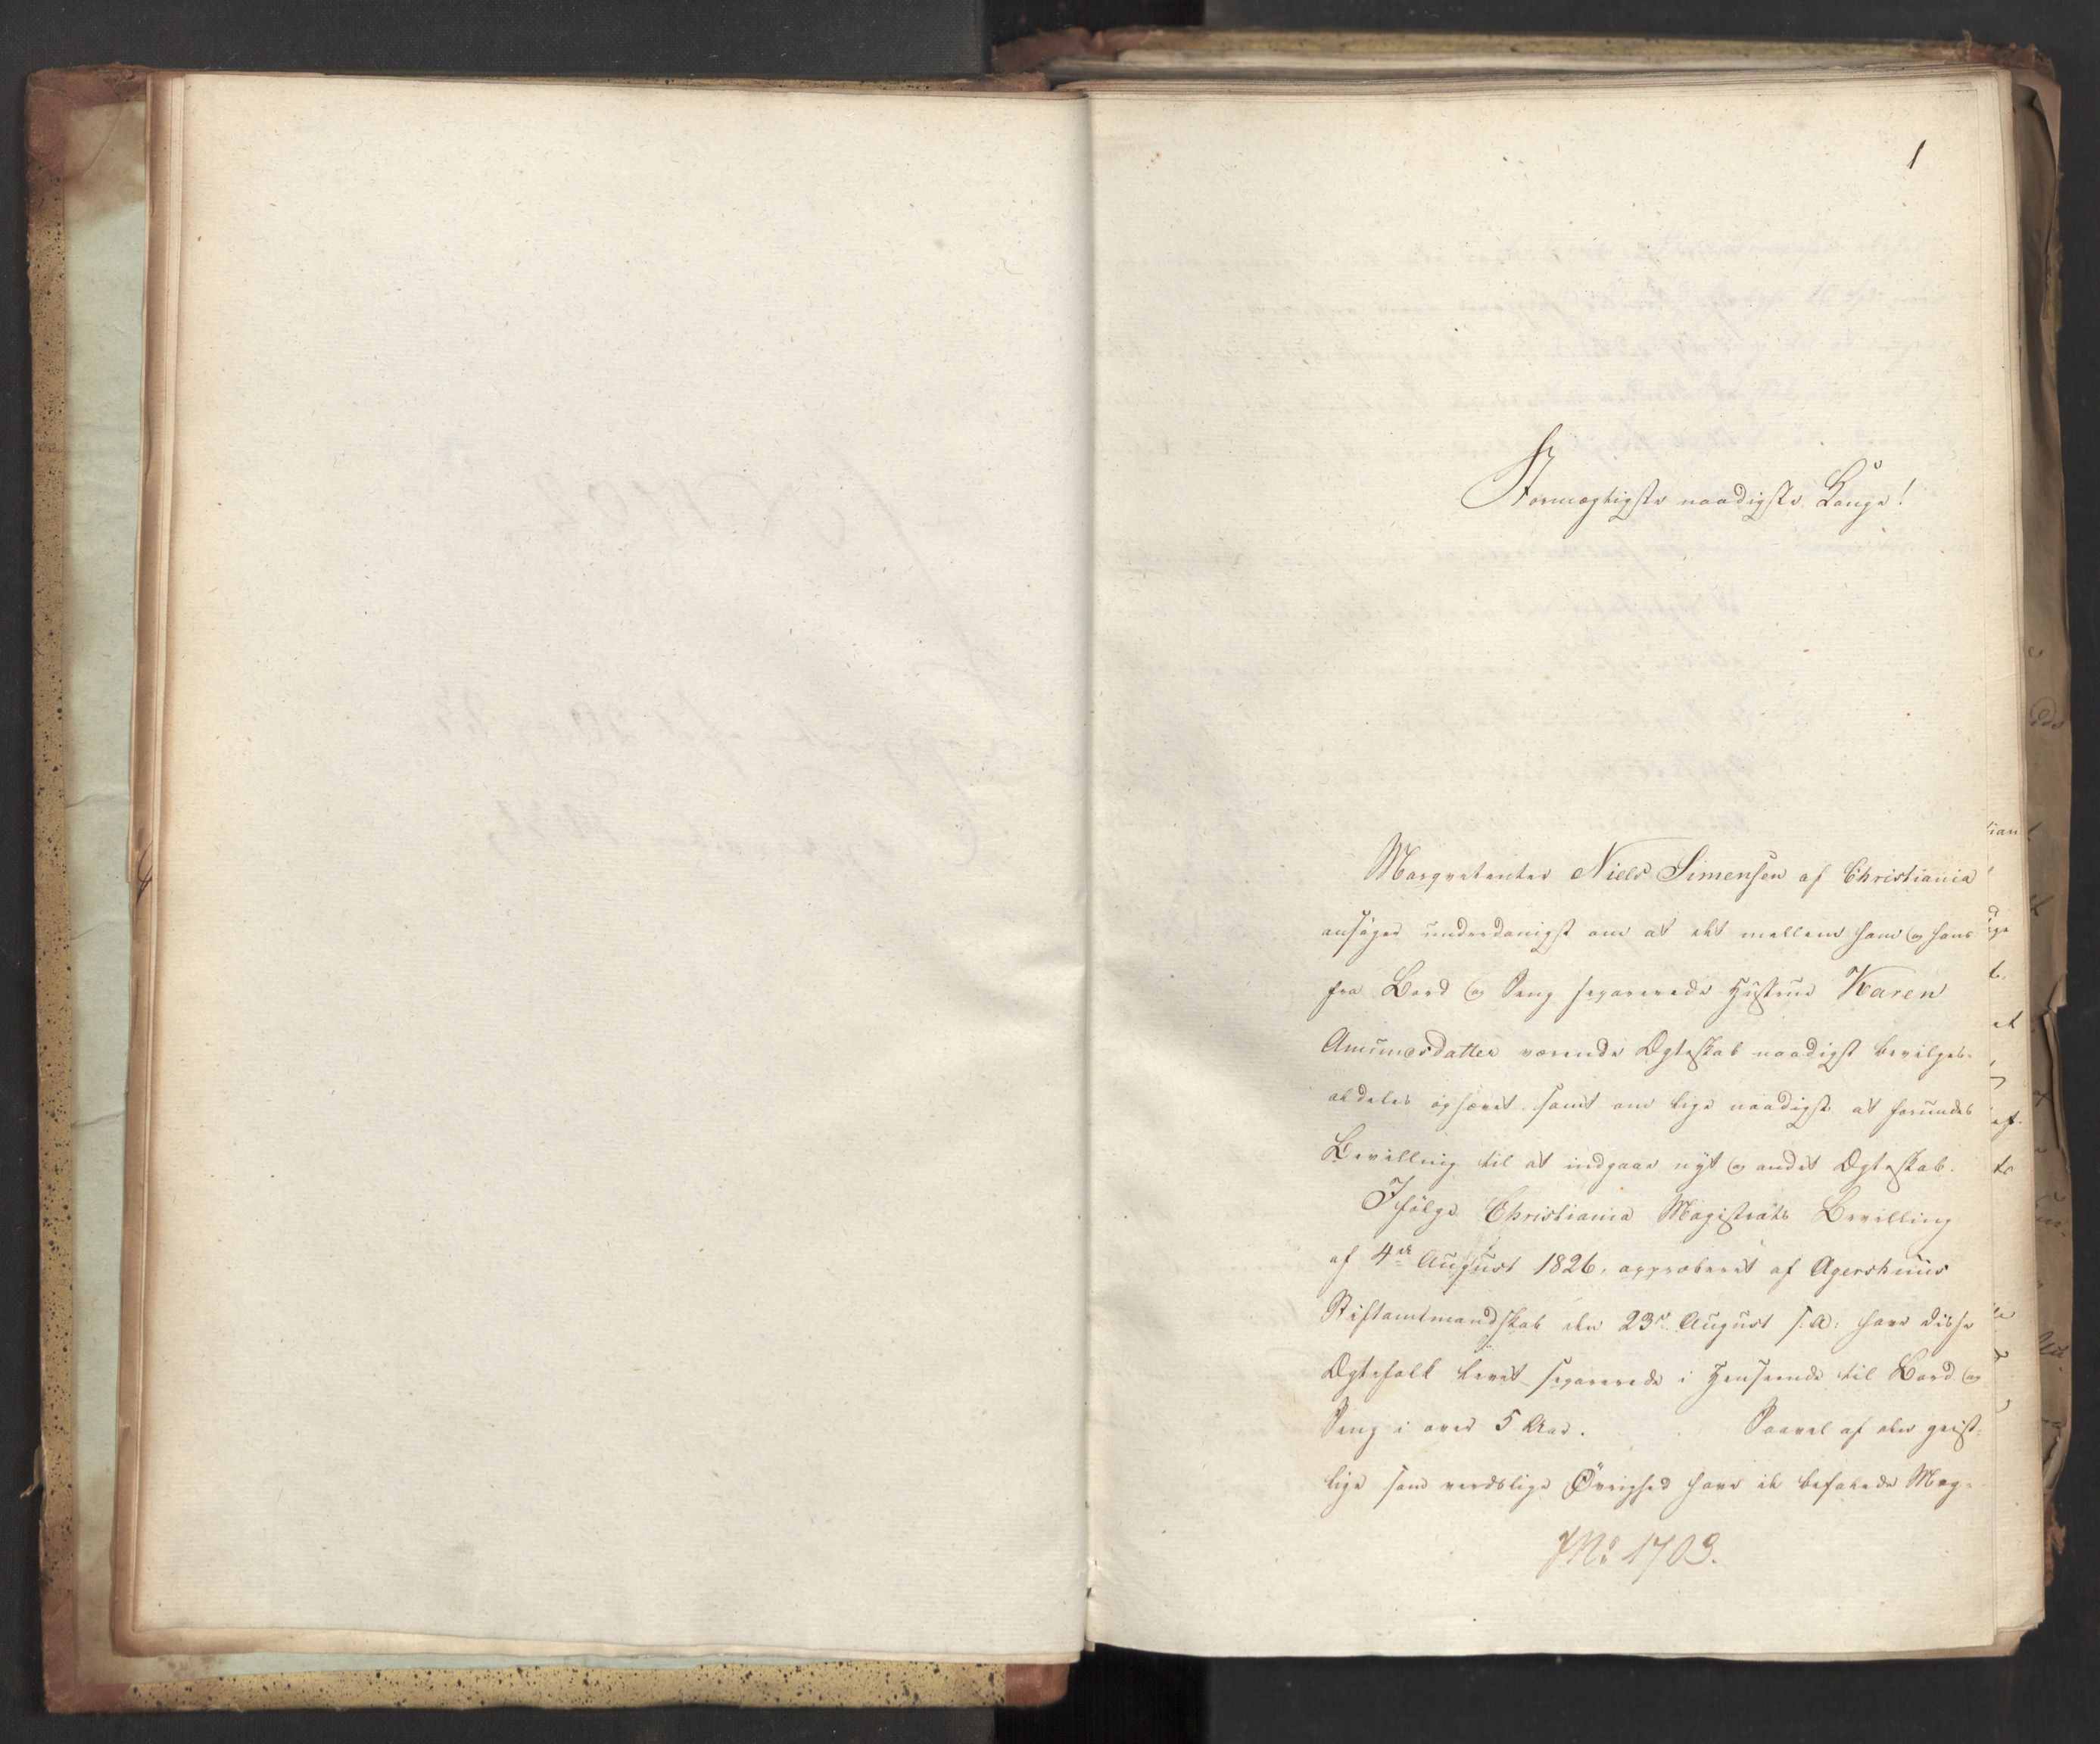 1
Stormægtigste naadigste Konge!
Marqvetenter Niels Simensen af Christiania
ansøger underdanigst om at det mellem ham og hans
fra Bord og Seng separerede Hustrue Karen
Amundsdatter værende Ægteskab naadigst bevilges
aldeles ophævet samt om lige naadigst at forundes
Bevilling til at indgaae nyt og andet Ægteskab.
Ifølge Christiania Magistrats Bevilling
af 4de August 1826, approberet af Agershuus
Stiftamtmandskab den 23de August s: A: have disse
Ægtefolk levet separerede i Henseende til Bord og
Seng i over 5 Aar. Saavel af den geist-
lige som verdslige Øvrighed have de befalede Mæg-
JNo 1703.